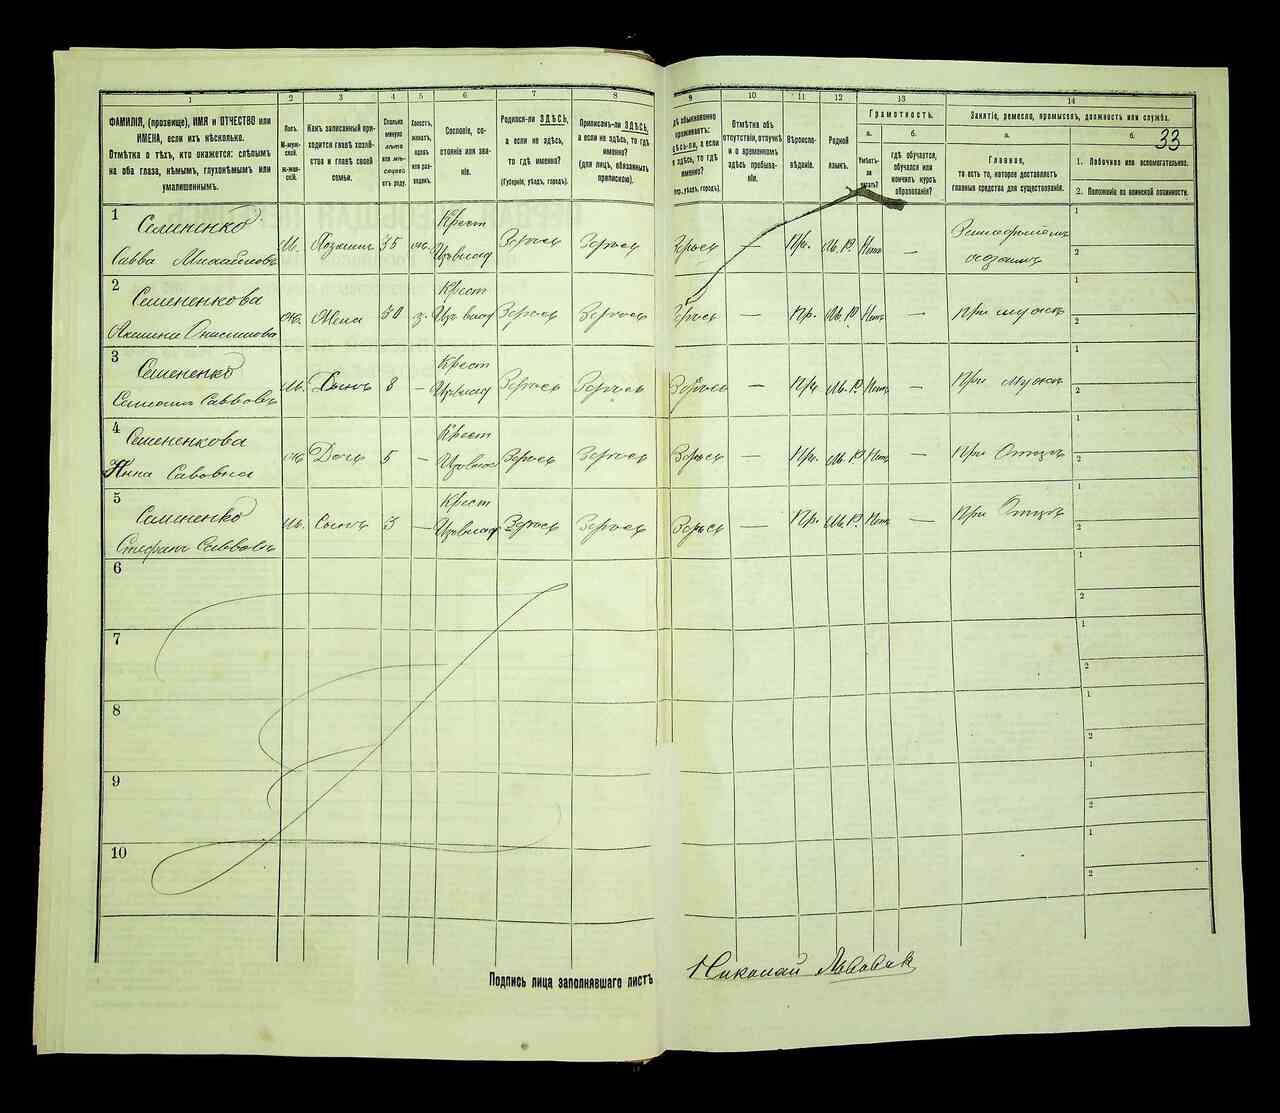 1 2 3 4 5 6 7 8 9 10 11 12 13 14
33
ФАМИЛІЯ, (прозвище), ИМЯ и ОТЧЕСТВО или
ИМЕНА, если ихъ нѣсколько.
Отмѣтка о тѣхъ, кто окажется: слѣпымъ
на оба глаза, нѣмымъ, глухонѣмымъ или
умалишеннымъ.
Полъ.
М-муж-
ской.
ж-жен-
скій.
Какъ записанный при-
ходится главѣ хозяй-
ства и главѣ своей
семьи.
Сколько
минуло
лѣтъ
или мѣ-
сяцевъ
отъ роду.
Холостъ,
женатъ,
вдовъ
или раз-
веденъ.
Сословіе, со-
стояніе или зва-
ніе.
Родился-ли ЗДѢСЬ,
а если не здѣсь,
то гдѣ именно?
(Губернія, уѣздъ, городъ).
Приписанъ-ли ЗДѢСЬ,
а если не здѣсь, то гдѣ
именно?
(для лицъ, обязанныхъ
припискою).
обыкновенно
проживаетъ:
здѣсь-ли, а если
здѣсь, то гдѣ
именно?
уѣздъ, городъ).
Отмѣтка объ
отсутствіи, отлучкѣ
и о временномъ
здѣсь пребыва-
ніи.
Вѣроиспо-
вѣданіе.
Родной
языкъ.
Грамотность.
а.
Умѣетъ-
ли
читать?
б.
гдѣ обучается,
обучался или
кончилъ курсъ
образованія?
Занятіе, ремесло, промыселъ, должность или служба.
а.
Главное,
то есть то, которое доставляетъ
главныя средства для существованія.
б.
1. Побочное или вспомогательное.
2. Положеніе по воинской повинности.
1 Семененко
Савва Михайловъ м. Хозяинъ 35 ж. Крест Здѣсь Здѣсь Здѣсь — Пр. М.Р. Нетъ —
1
2
2 Семененкова
Жена 30 з. Крест Здѣсь Здѣсь Здѣсь — Пр. М.Р. Нетъ — При мужѣ
1
2
3 Семененко
Саввовъ м. Сынъ 8 — Крест Здѣсь Здѣсь Здѣсь — Пр. М.Р. Нетъ — При мужѣ
1
2
4 Семененкова
Анна Савовна Дочь 5 — Крест Здѣсь Здѣсь Здѣсь — Пр. М.Р. Нетъ — При Отцѣ
1
2
5 Семененко
Стефанъ Саввовъ м. Сынъ 3 — Крест Здѣсь Здѣсь Здѣсь — Пр. М.Р. Нетъ — При Отцѣ
1
2
6
1
2
7
1
2
8
1
2
9
1
2
10
1
2
Подпись лица заполнявшаго листъ Николай